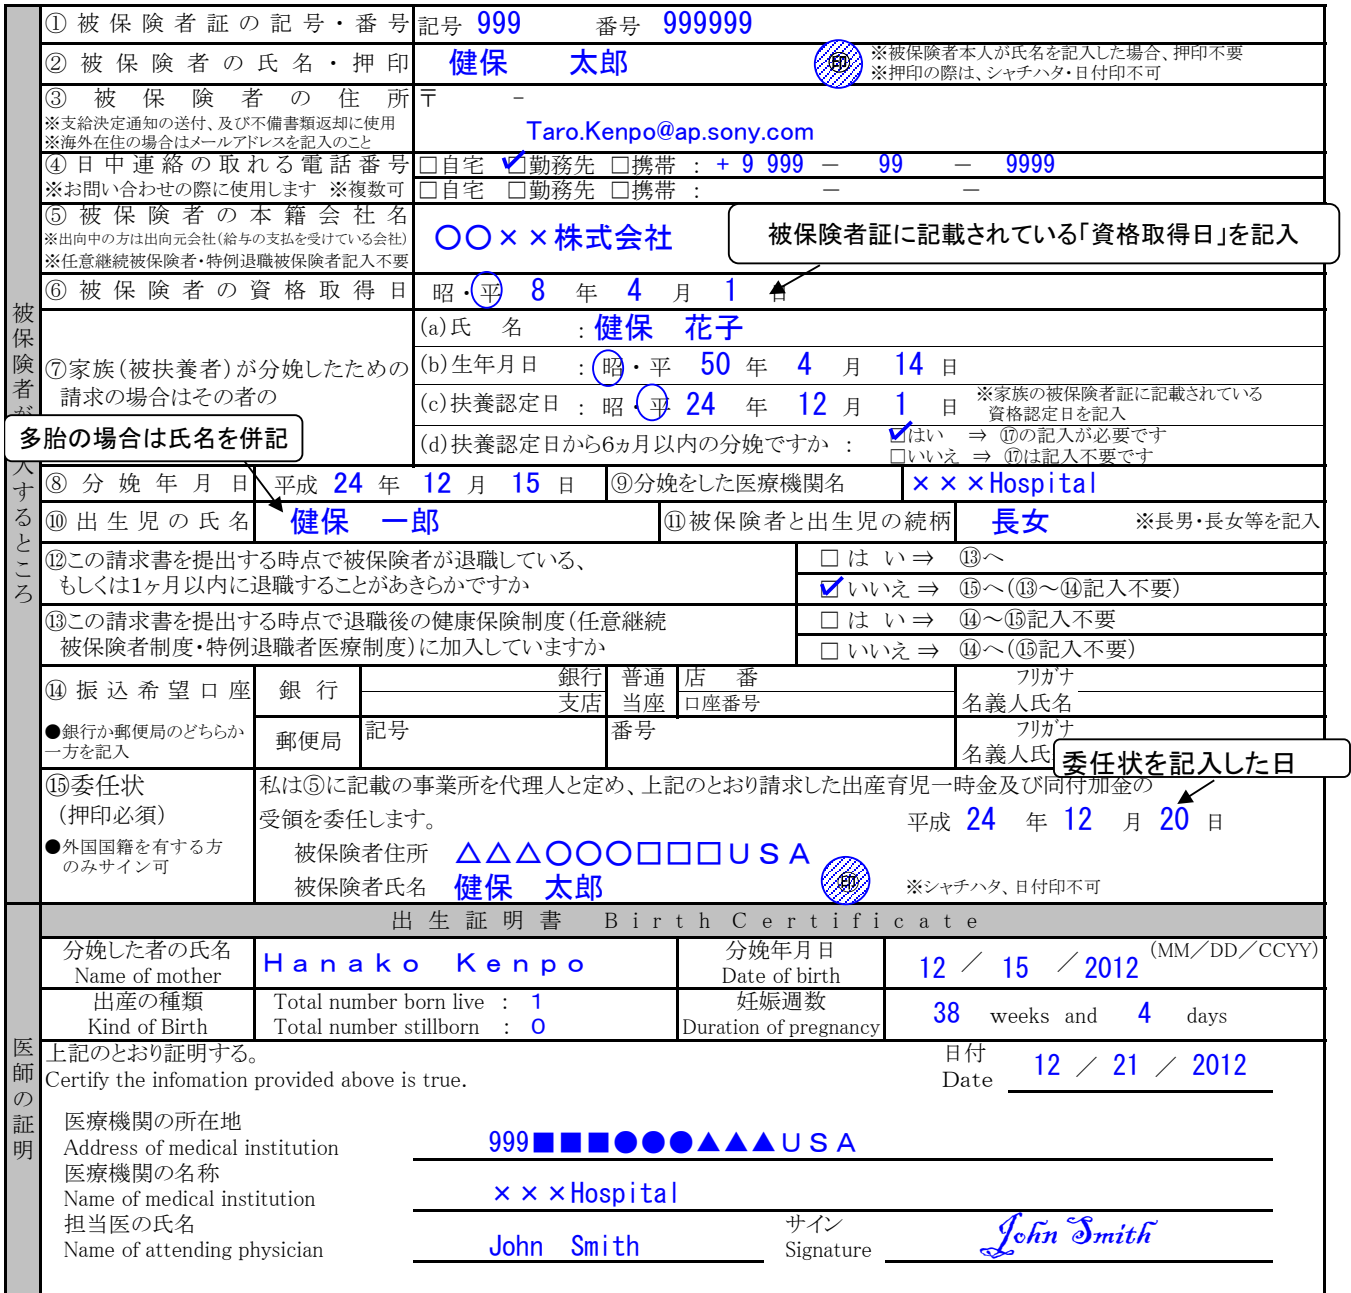 ①被保険者証の記号・番号 記号 999 番号 999999
②被保険者の氏名・押印 健保 太郎 印 ※被保険者本人が氏名を記入した場合、押印不要
※押印の際は、シャチハタ・日付印不可
③被保険者の住所 〒 －
※支給決定通知の送付、及び不備書類返却に使用
※海外在住の場合はメールアドレスを記入のこと
Taro.Kenpo@ap.sony.com
④日中連絡の取れる電話番号 □自宅 ☑勤務先 □携帯 : + 9 999 － 99 － 9999
※お問い合わせの際に使用します ※複数可 □自宅 □勤務先 □携帯 : － －
⑤被保険者の本籍会社名
※出向中の方は出向元会社(給与の支払を受けている会社)
※任意継続被保険者・特例退職被保険者記入不要
○○××株式会社
被保険者証に記載されている「資格取得日」を記入
⑥被保険者の資格取得日 昭・平 8 年 4 月 1 日
被保険者が
入するところ
⑦家族(被扶養者)が分娩したための
請求の場合はその者の
(a)氏 名 : 健保 花子
(b)生年月日 : 昭・平 50 年 4 月 14 日
(c)扶養認定日 : 昭・平 24 年 12 月 1 日 ※家族の被保険者証に記載されている
資格認定日を記入
(d)扶養認定日から6ヵ月以内の分娩ですか : ☑はい ⇒ ⑰の記入が必要です
□いいえ ⇒ ⑰は記入不要です
多胎の場合は氏名を併記
⑧分娩年月日 平成 24 年 12 月 15 日 ⑨分娩をした医療機関名 ×××Hospital
⑩出生児の氏名 健保 一郎 ⑪被保険者と出生児の続柄 長女 ※長男・長女等を記入
⑫この請求書を提出する時点で被保険者が退職している、
もしくは1ヶ月以内に退職することがあきらかですか
□はい⇒ ⑬へ
☑いいえ⇒ ⑮へ(⑬～⑭記入不要)
⑬この請求書を提出する時点で退職後の健康保険制度(任意継続
被保険者制度・特例退職者医療制度)に加入していますか
□はい⇒ ⑭～⑮記入不要
□いいえ⇒ ⑭へ(⑮記入不要)
⑭振込希望口座 銀行 銀行 普通 店番 フリガナ
支店 当座 口座番号 名義人氏名
●銀行か郵便局のどちらか
一方を記入
郵便局 記号 番号 フリガナ
名義人氏
委任状を記入した日
⑮委任状
(押印必須)
●外国国籍を有する方
のみサイン可
私は⑤に記載の事業所を代理人と定め、上記のとおり請求した出産育児一時金及び同付加金の
受領を委任します。 平成 24 年 12 月 20 日
被保険者住所 △△△○○○□□□USA
被保険者氏名 健保 太郎 印 ※シャチハタ、日付印不可
出生証明書 Birth Certificate
医師の証明
分娩した者の氏名 分娩年月日 (MM/DD/CCYY)
Name of mother Hanako Kenpo Date of birth 12 / 15 / 2012
出産の種類 Total number born live : 1 妊娠週数
Kind of Birth Total number stillborn : 0 Duration of pregnancy 38 weeks and 4 days
上記のとおり証明する。 日付
Certify the infomation provided above is true. Date 12 / 21 / 2012
医療機関の所在地
Address of medical institution 999■■■●●●▲▲▲USA
医療機関の名称
Name of medical institution ×××Hospital
担当医の氏名 サイン
Name of attending physician John Smith Signature John Smith